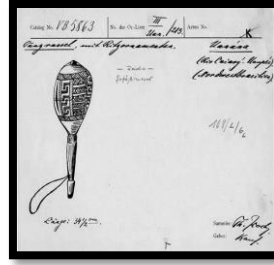 Catalog No. VB 5863 No. der Ov.-Liste III Uan. /203. Acten No. K
Tanzrassel, mit Ritzornamenten. Uanána
(Rio Caiarý-Uaupés)
(Nordwestbrasilien)
Länge: 34½ cm.
Sammler: Th. Koch
Geber: Kauf.